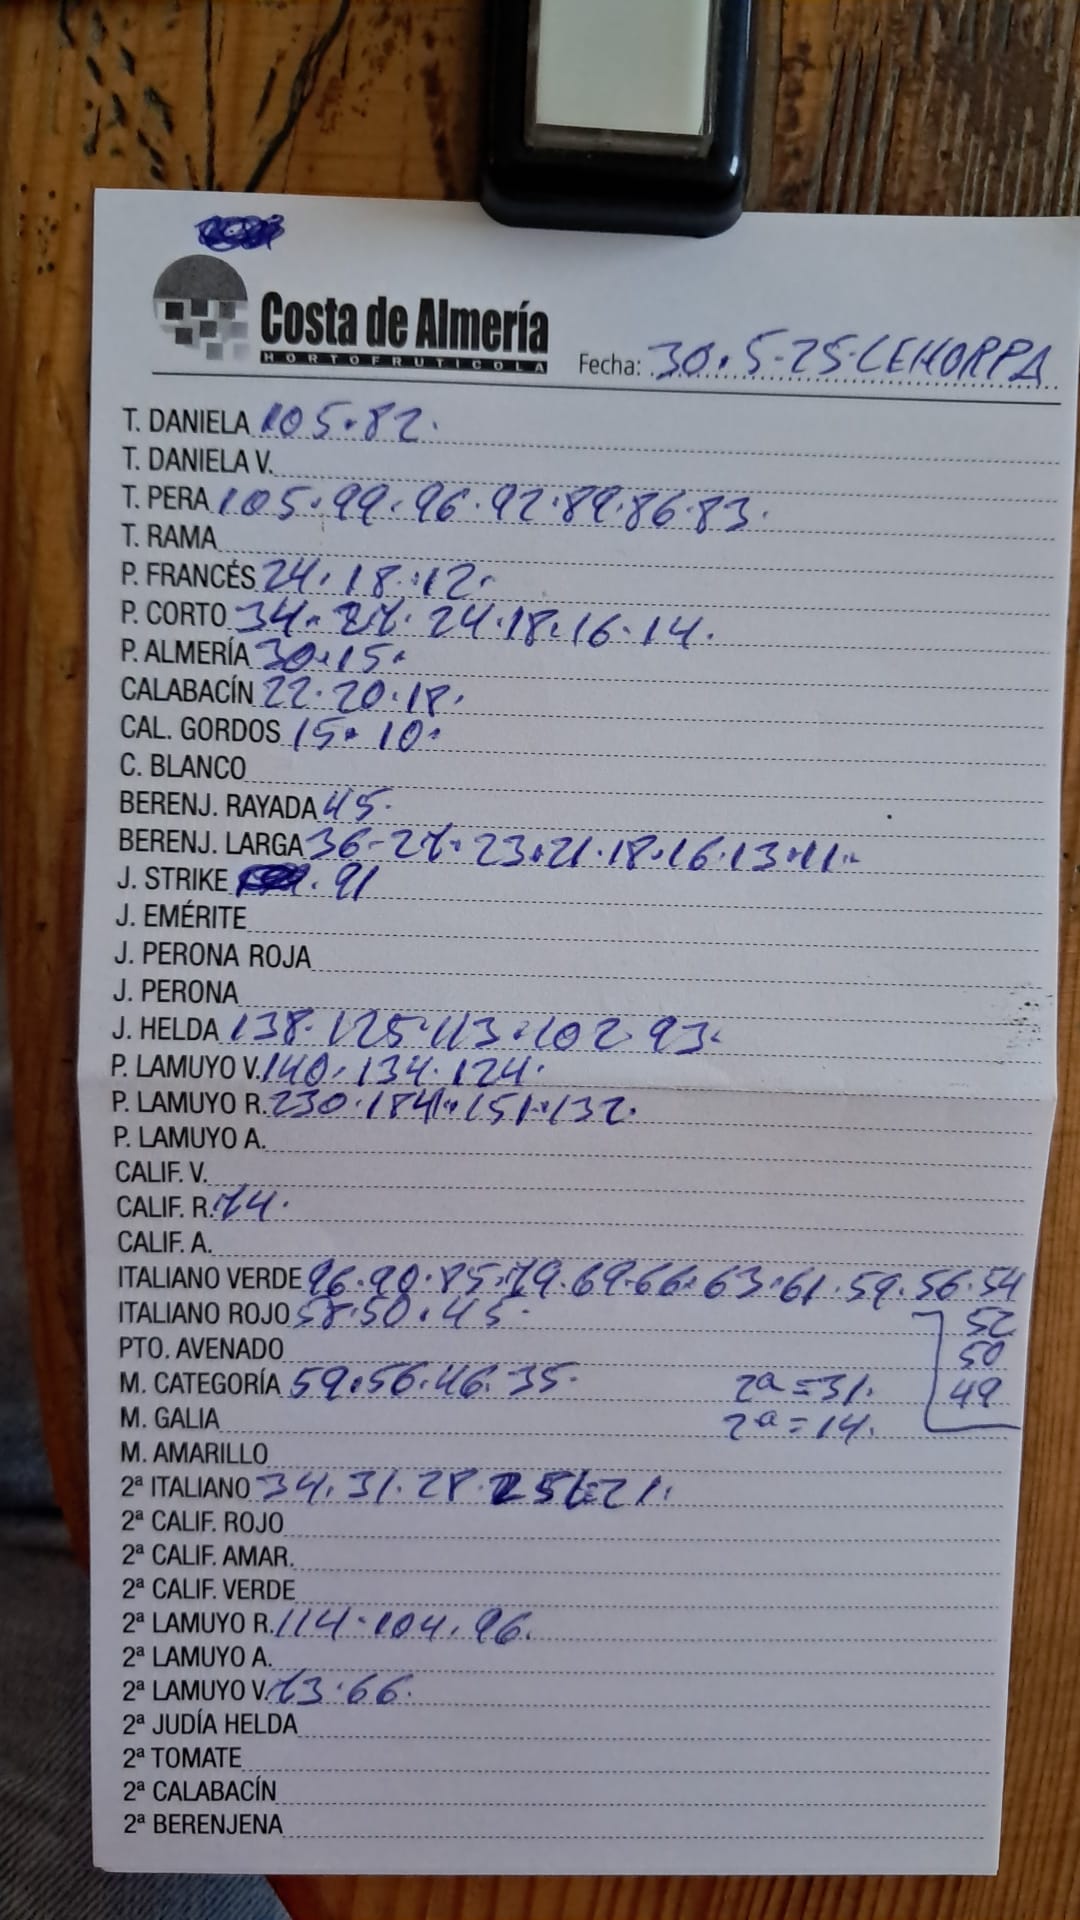 Costa de Almería
HORTOFRUTICOLA
Fecha: 30.5-25-CEHORPA
T. DANIELA 105.82.
T. DANIELA V.
T. PERA 105.99.96.92.89.86.83.
T. RAMA
P. FRANCÉS 24.18.12.
P. CORTO 34.27.24.18.16.14.
P. ALMERÍA 30.15.
CALABACÍN 22.20.18.
CAL. GORDOS 15.10.
C. BLANCO
BERENJ. RAYADA 45.
BERENJ. LARGA 36-27.23.21.18.16.13.11.
J. STRIKE .91
J. EMÉRITE
J. PERONA ROJA
J. PERONA
J. HELDA 138.125.113.102.93.
P. LAMUYO V. 140.134.124.
P. LAMUYO R. 230.184.151.132.
P. LAMUYO A.
CALIF. V.
CALIF. R. 74.
CALIF. A.
ITALIANO VERDE 96.90.85.79.69.66.63.61.59.56.54
ITALIANO ROJO 58.50.45. 52
PTO. AVENADO 50
M. CATEGORÍA 59.56.46.35. 2ª=31. 49
M. GALIA 2ª=14.
M. AMARILLO
2ª ITALIANO 34.31.28.25 21.
2ª CALIF. ROJO
2ª CALIF. AMAR.
2ª CALIF. VERDE
2ª LAMUYO R. 114.104.96.
2ª LAMUYO A.
2ª LAMUYO V. 73.66.
2ª JUDÍA HELDA
2ª TOMATE
2ª CALABACÍN
2ª BERENJENA